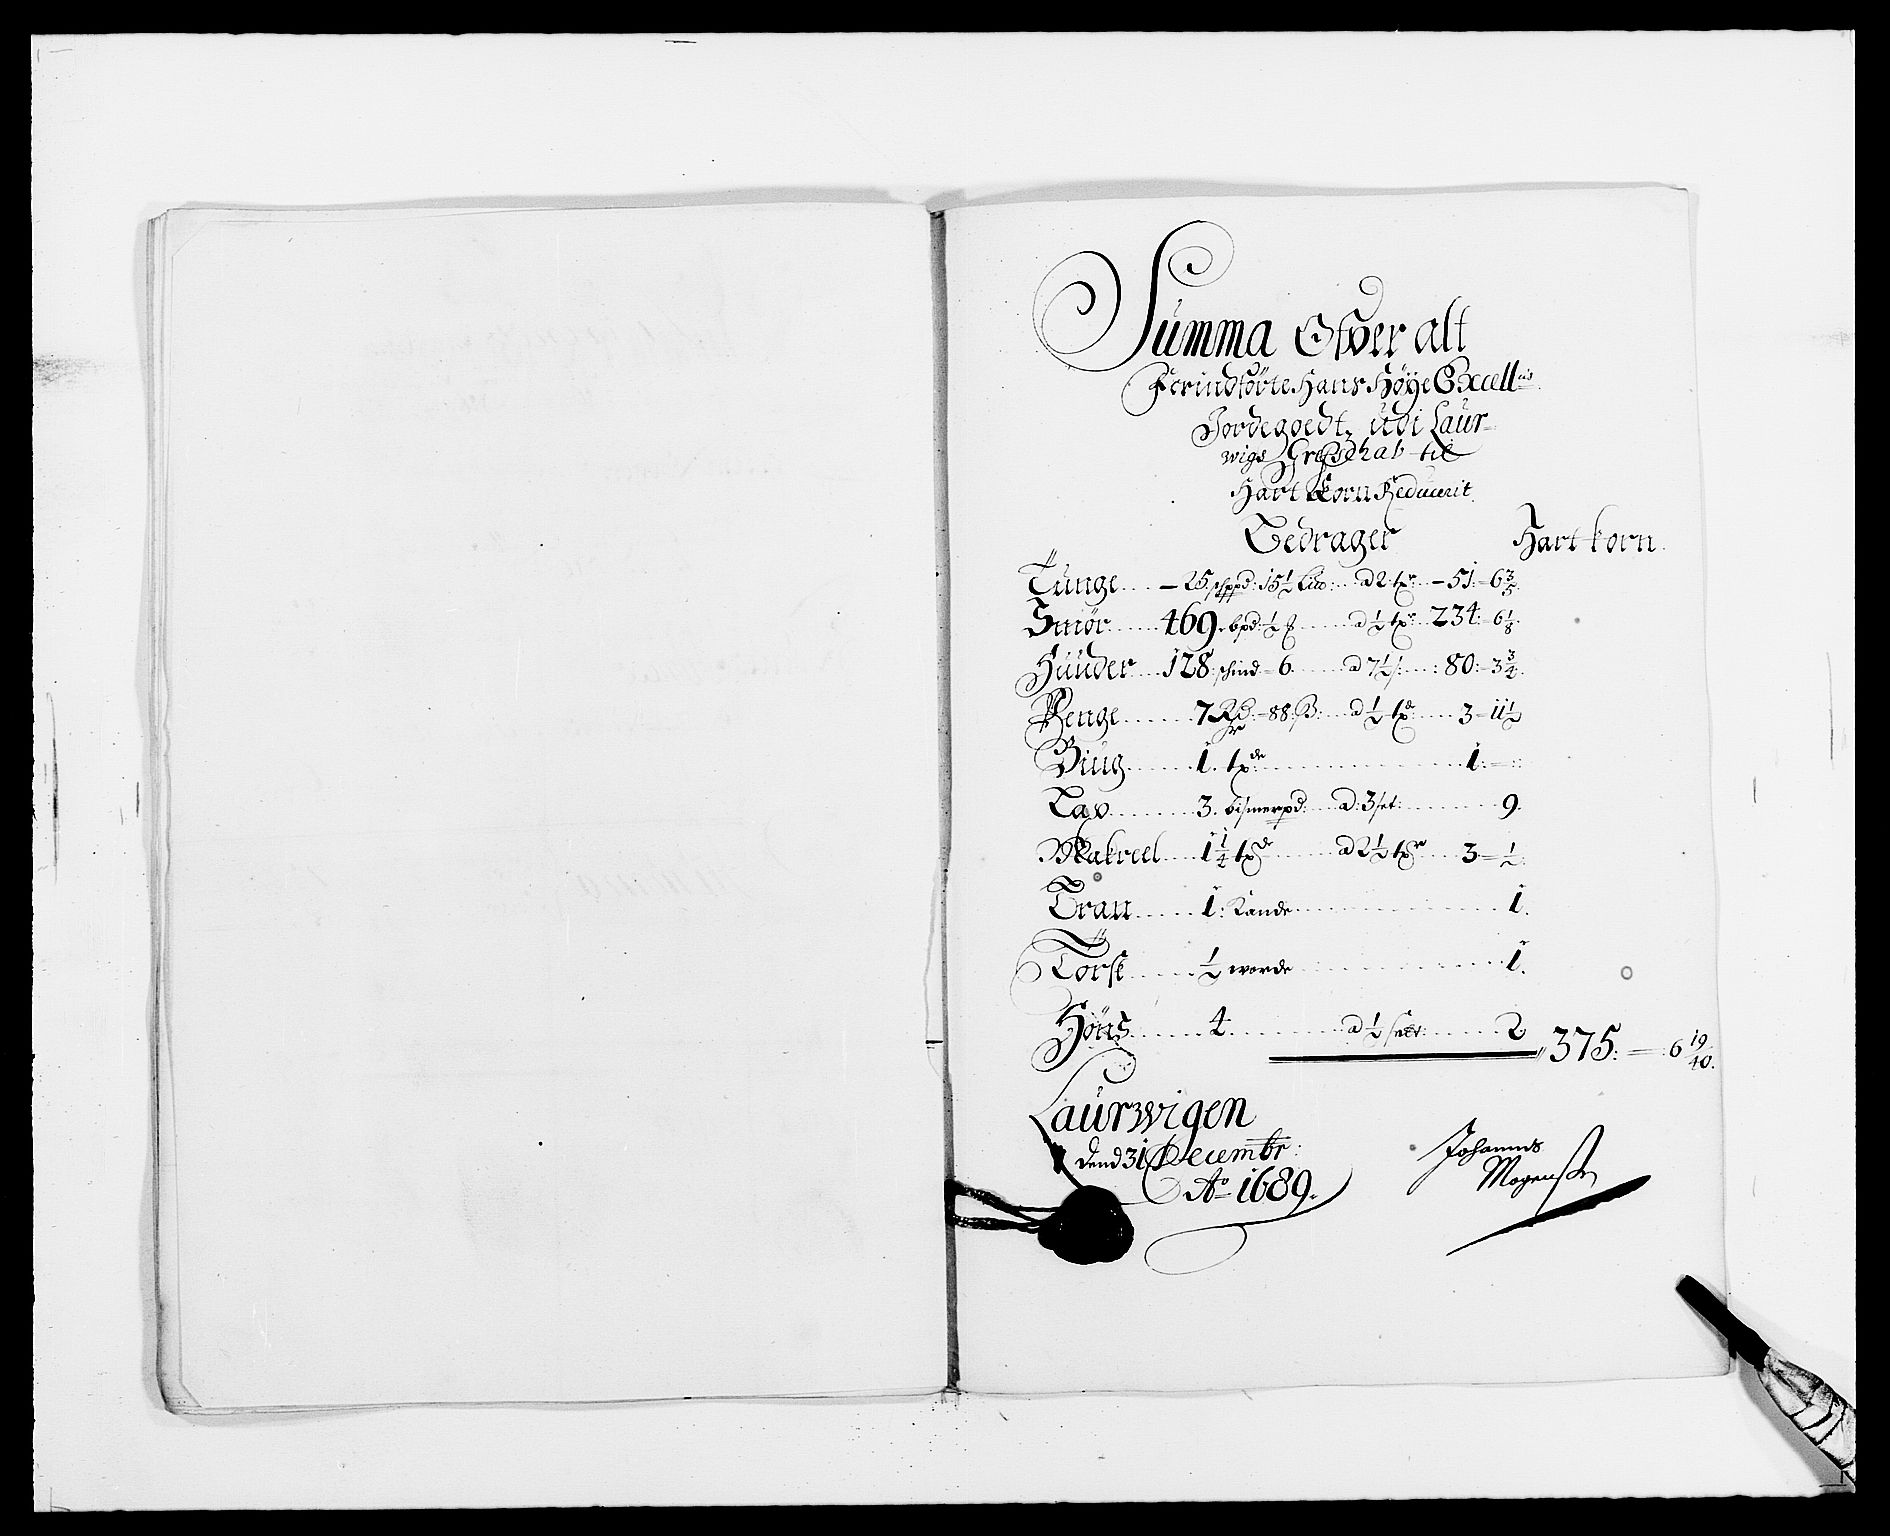 Summa Ofver alt
Forindførte Hans Høye Excell:
Jordegoedtz udi Laur-
wigs Grefschab til
Hart korn Reducerit
Bedrager Hart korn
Tunge – 25 schppd: 15½ Lw: a 2 tr: – 51: – 6 3/5
Smør 469. bpd: ½ a ½ tr: 234: – 6 1/8
Huuder 128 schind – 6 a 7½ : 80: – 3 3/4
Penge 7 Rd: – 88 ß: a ½ td: 3 – 11½
Biug 1. tde 1: –
Lax 3. bismerpd: a: 3 set: 9.
Makreel 1¼ tde a 2½ tr 3 – ½
Tran 1: Kande 1.
Törsk ½ worde 1.
Höns 4 a ½ sett: 2 375: – 6 19/40.
Laurwigen
dend 31 Decembr:
Ao 1689.
Johannes
Mogensen